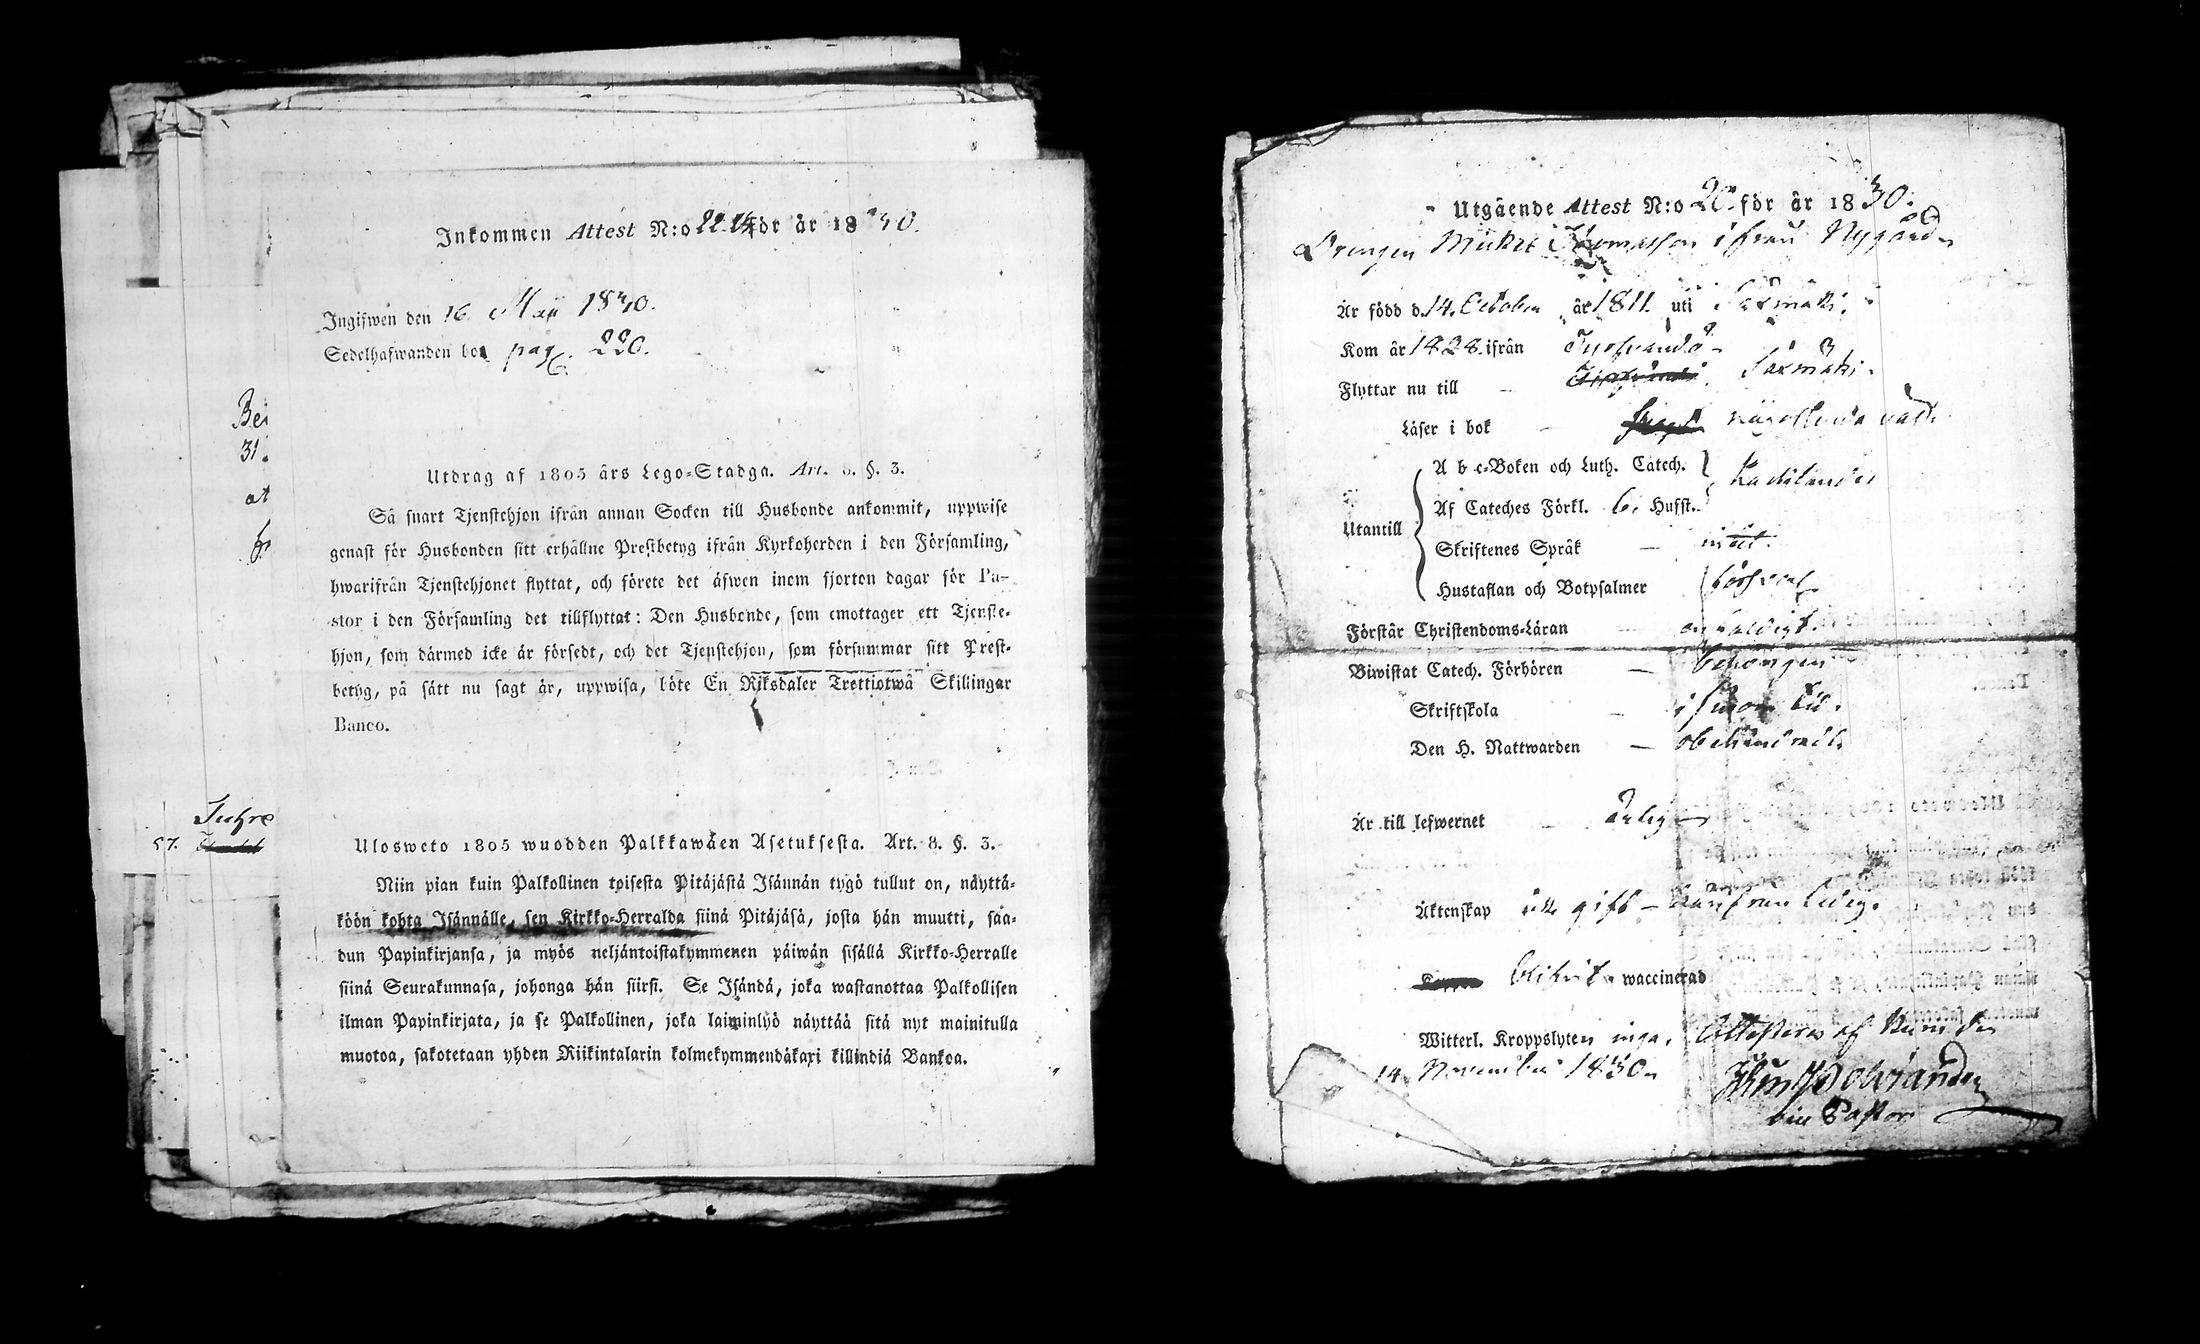 Inkommen Attest N:o för år 18
Ingifwen den 16. Maji
Sedelhafwanden bor pag. 220.
Bei
31.
at
Utdrag af 1805 års Lego-Stadga. Art. §. 3.
Så snart Tjenstehjon ifrån annan Socken till Husbonde ankommit, uppwise
genast för Husbonden sitt erhållne Prestbetyg ifrån Kyrkoherden i den Församling,
hwarifrån Tjenstehjonet flyttat, och förete det äfwen inom fjorton dagar för Pa-
stor i den Församling det tillflyttat: Den Husbonde, som emottager ett Tjenste-
hjon, som därmed icke är försedt, och det Tjenstehjon, som försummar sitt Prest-
betyg, på sätt nu sagt är, uppwisa, böte En Riksdaler Trettiotwå Skillingar
Banco.
57.
Ulosweto 1805 wuodden Palkkawäen Asetuksesta. Art. 8. §. 3.
Niin pian kuin Palkollinen toisesta Pitäjästä Isännän tygö tullut on, näyttä-
köön kohta Isännälle, sen Kirkko-Herralda siinä Pitäjäsä, josta hän muutti, saa-
dun Papinkirjansa, ja myös neljäntoistakymmenen päiwän sisällä Kirkko-Herralle
siinä Seurakunnasa, johonga hän siirsi. Se Isändä, joka wastanottaa Palkollisen
ilman Papinkirjata, ja se Palkollinen, joka laiminlyö näyttää sitä nyt mainitulla
muotoa, sakotetaan yhden Riikintalarin kolmekymmendäkaxi killindiä Bankoa.
Utgående Attest N:o för år 1830.
Drengen Mickel Thomasson ifrån Nygård
Är född d. 14. October år 1811. uti Säxmäki.
Kom år 1828. ifrån
Flyttar nu till — Säxmäki.
Läser i bok — någorlunda
Utantill
A b c-Boken och Luth. Catech.
Af Cateches Förkl. 6. Hufst.
Skriftenes Språk —
Hustaflan och Botpsalmer försvarl.
Förstår Christendoms-Läran — enfaldigt
Biwistat Catech. Förhören — behörigen
Skriftskola — i sinom tid.
Den H. Nattwarden — obehindrad.
Är till lefwernet — ärlig
Äktenskap ick gift — frän ledig.
waccinerad
Witterl. Kroppslyten inga. Attesteras af
14. November 1830.
Pastor